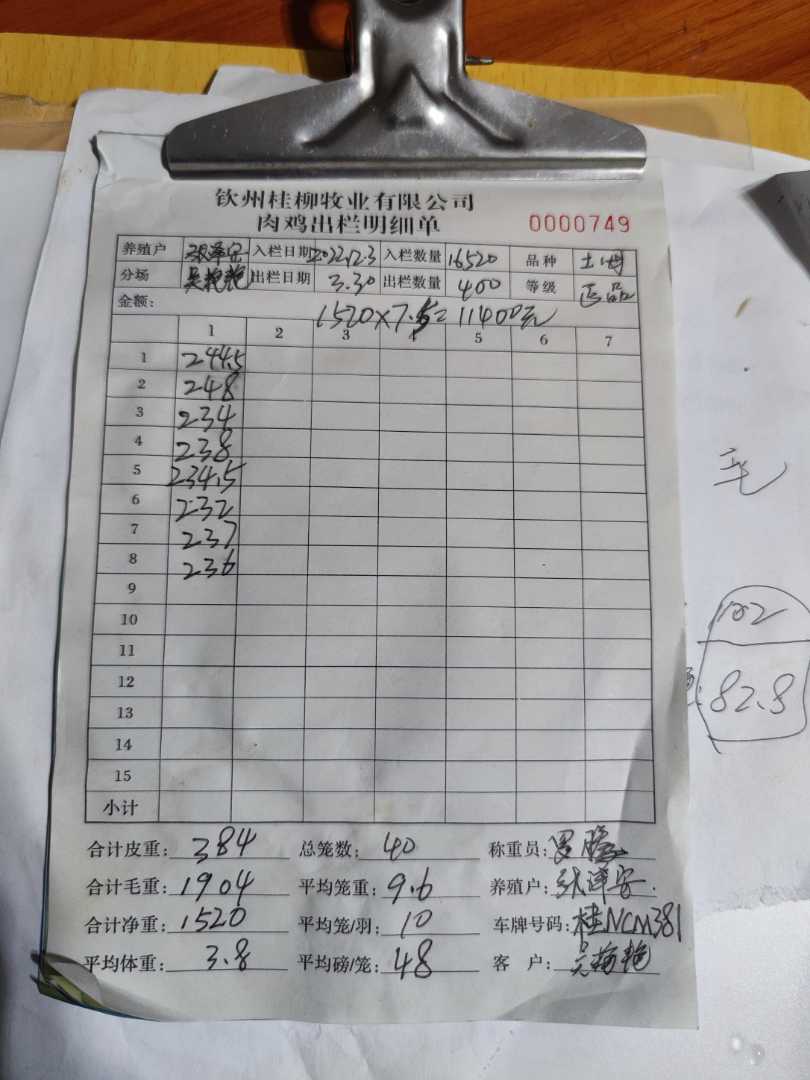 钦州桂柳牧业有限公司
肉鸡出栏明细单 0000749
养殖户 张泽安 入栏日期 2022.12.3 入栏数量 16520 品种 土
分场 吴艳艳 出栏日期 3.30 出栏数量 400 等级 正品
金额: 1520×7.5= 11400元
1 2 3 4 5 6 7
1 244.5
2 248
3 234
4 238
5 234.5
6 232
7 237
8 236
9
10
11
12
13
14
15
小计
合计皮重: 384 总笼数: 40 称重员: 罗
合计毛重: 1904 平均笼重: 9.6 养殖户: 张泽安
合计净重: 1520 平均笼/羽: 10 车牌号码: 桂NCM381
平均体重: 3.8 平均磅/笼: 48 客 户:
毛
102
82.8